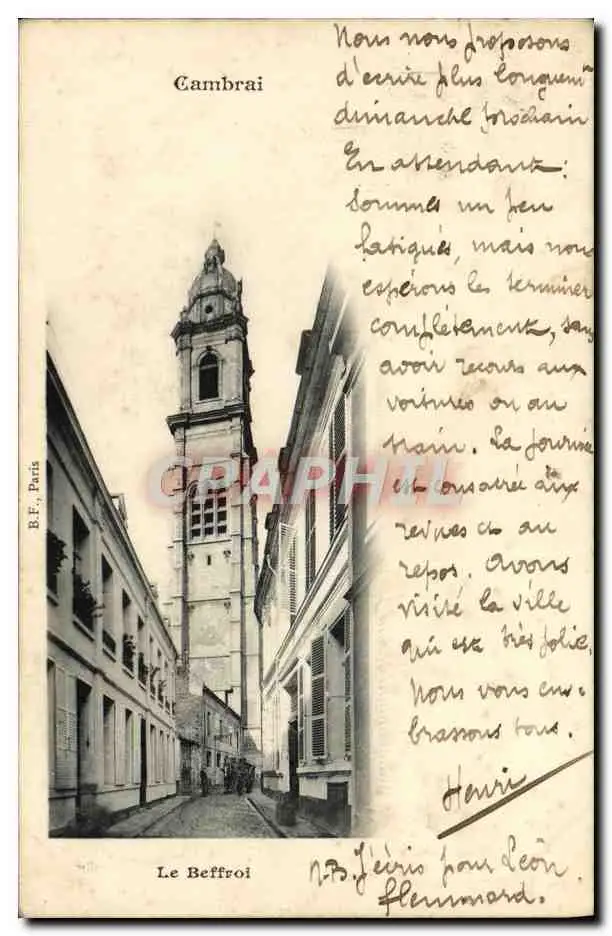 Cambrai
Nous nous proposons
d'écrire plus longuemt
dimanche prochain
En attendant :
Sommes un peu
fatigués, mais nous
espérons les terminer
complètement, sans
avoir recours aux
voitures ou au
train. La journée
est consacrée aux
revues et au
repos. Avons
visité la ville
qui est très jolie.
Nous vous em-
brassons tous.
Henri
CPAPHIL
B.F., Paris
Le Beffroi
N.B. J'écris pour Léon
flemmard.